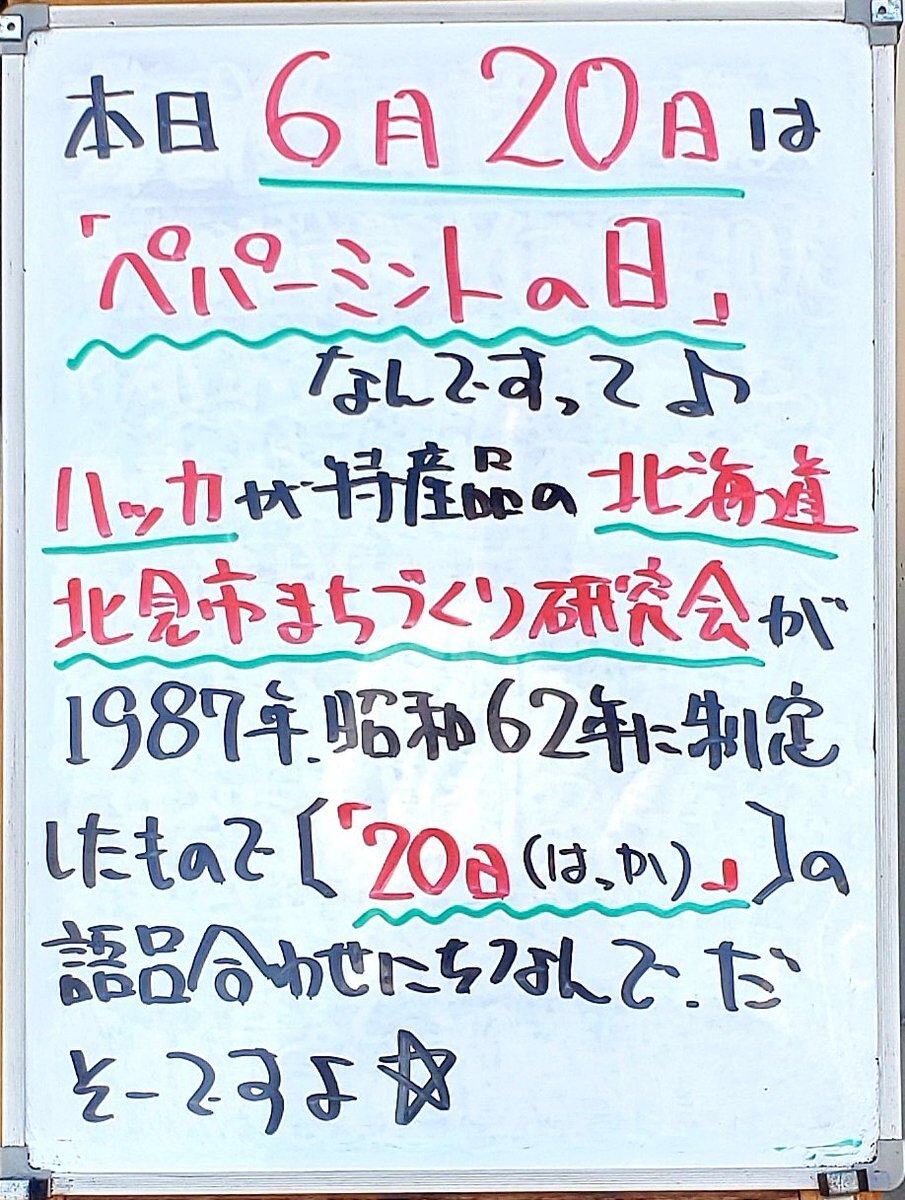 本日6月20日は
「ペパーミントの日」
なんですって♪
ハッカが特産品の北海道
北見市まちづくり研究会が
1987年.昭和62年に制定
したもので[「20日(はっか)」]の
語呂合わせにちなんで.だ
そーですよ☆